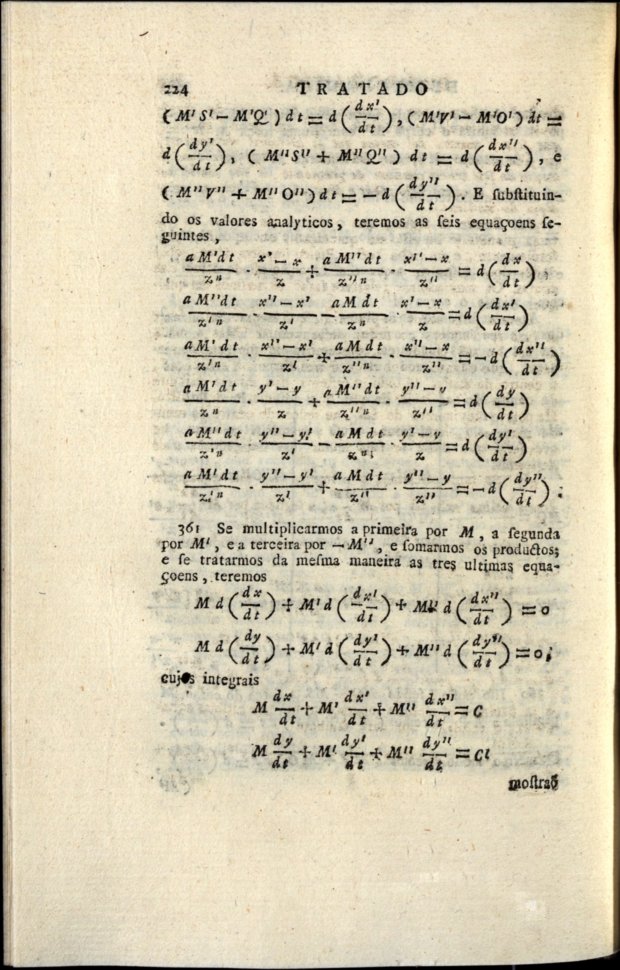 224 TRATADO
(M'S' — M'Q') dt = d(dx'/dt), (M'V' — M'O') dt =
d(dy'/dt), (M''S'' + M''Q'') dt = d(dx''/dt), e
(M''V'' + M''O'') dt = — d(dy''/dt). E ſubſtituin-
do os valores analyticos, teremos as ſeis equaçoens ſe-
guintes,
aM'dt/zⁿ · x'—x/z + aM''dt/z''ⁿ · x''—x/z'' = d(dx/dt)
aM''dt/z'ⁿ · x''—x'/z' — aMdt/zⁿ · x'—x/z = d(dx'/dt)
aM'dt/z'ⁿ · x''—x'/z' + aMdt/z''ⁿ · x''—x/z'' = —d(dx''/dt)
aM'dt/zⁿ · y'—y/z + aM''dt/z''ⁿ · y''—y/z'' = d(dy/dt)
aM''dt/z'ⁿ · y''—y'/z' — aMdt/zⁿ · y'—y/z = d(dy'/dt)
aM'dt/z'ⁿ · y''—y'/z' + aMdt/z'' · y''—y/z'' = —d(dy''/dt).
361 Se multiplicarmos a primeira por M, a ſegunda
por M', e a terceira por — M'', e ſomarmos os productos;
e ſe tratarmos da meſma maneira as tres ultimas equa-
çoens, teremos
M d(dx/dt) + M' d(dx'/dt) + M'' d(dx''/dt) = 0
M d(dy/dt) + M' d(dy'/dt) + M'' d(dy''/dt) = 0;
cujos integrais
M dx/dt + M' dx'/dt + M'' dx''/dt = C
M dy/dt + M' dy'/dt + M'' dy''/dt = C'
moſtraõ